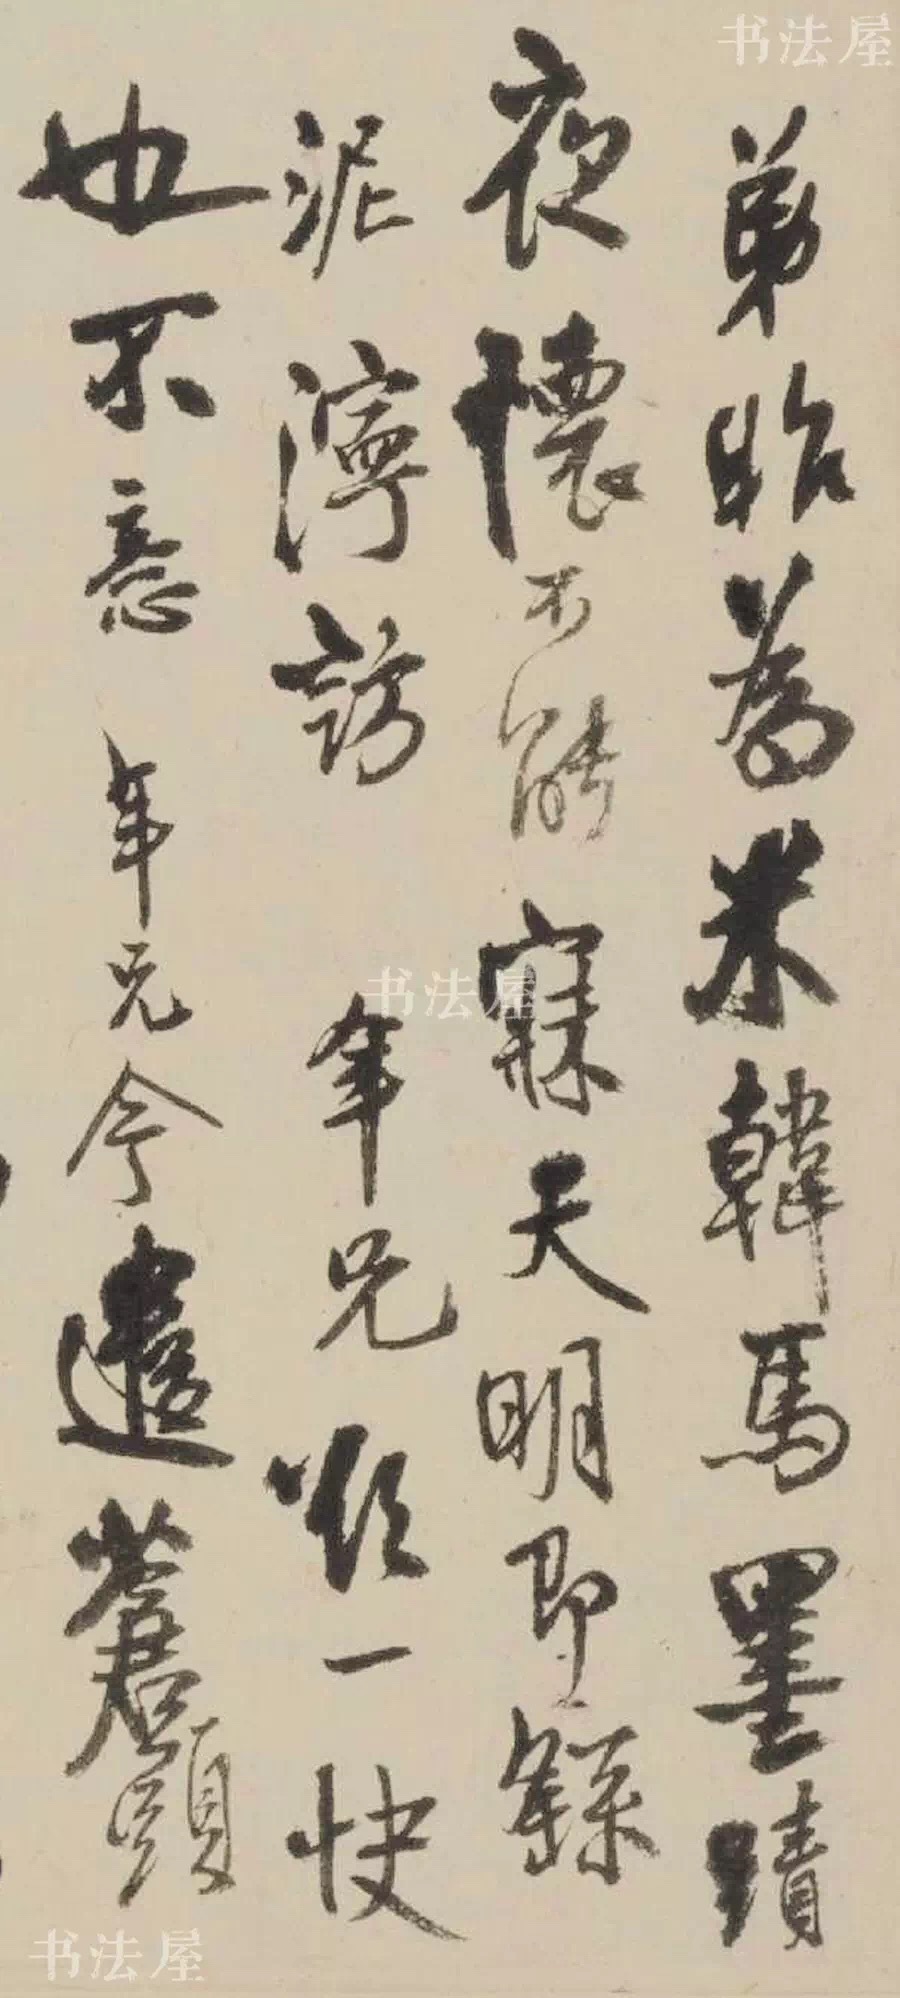 书法屋
弟昨為米韓馬墨蹟
夜懷不能寐天明即繇
泥濘訪年兄欲一快
也不意年兄今遣蒼頭
书法屋
书法屋